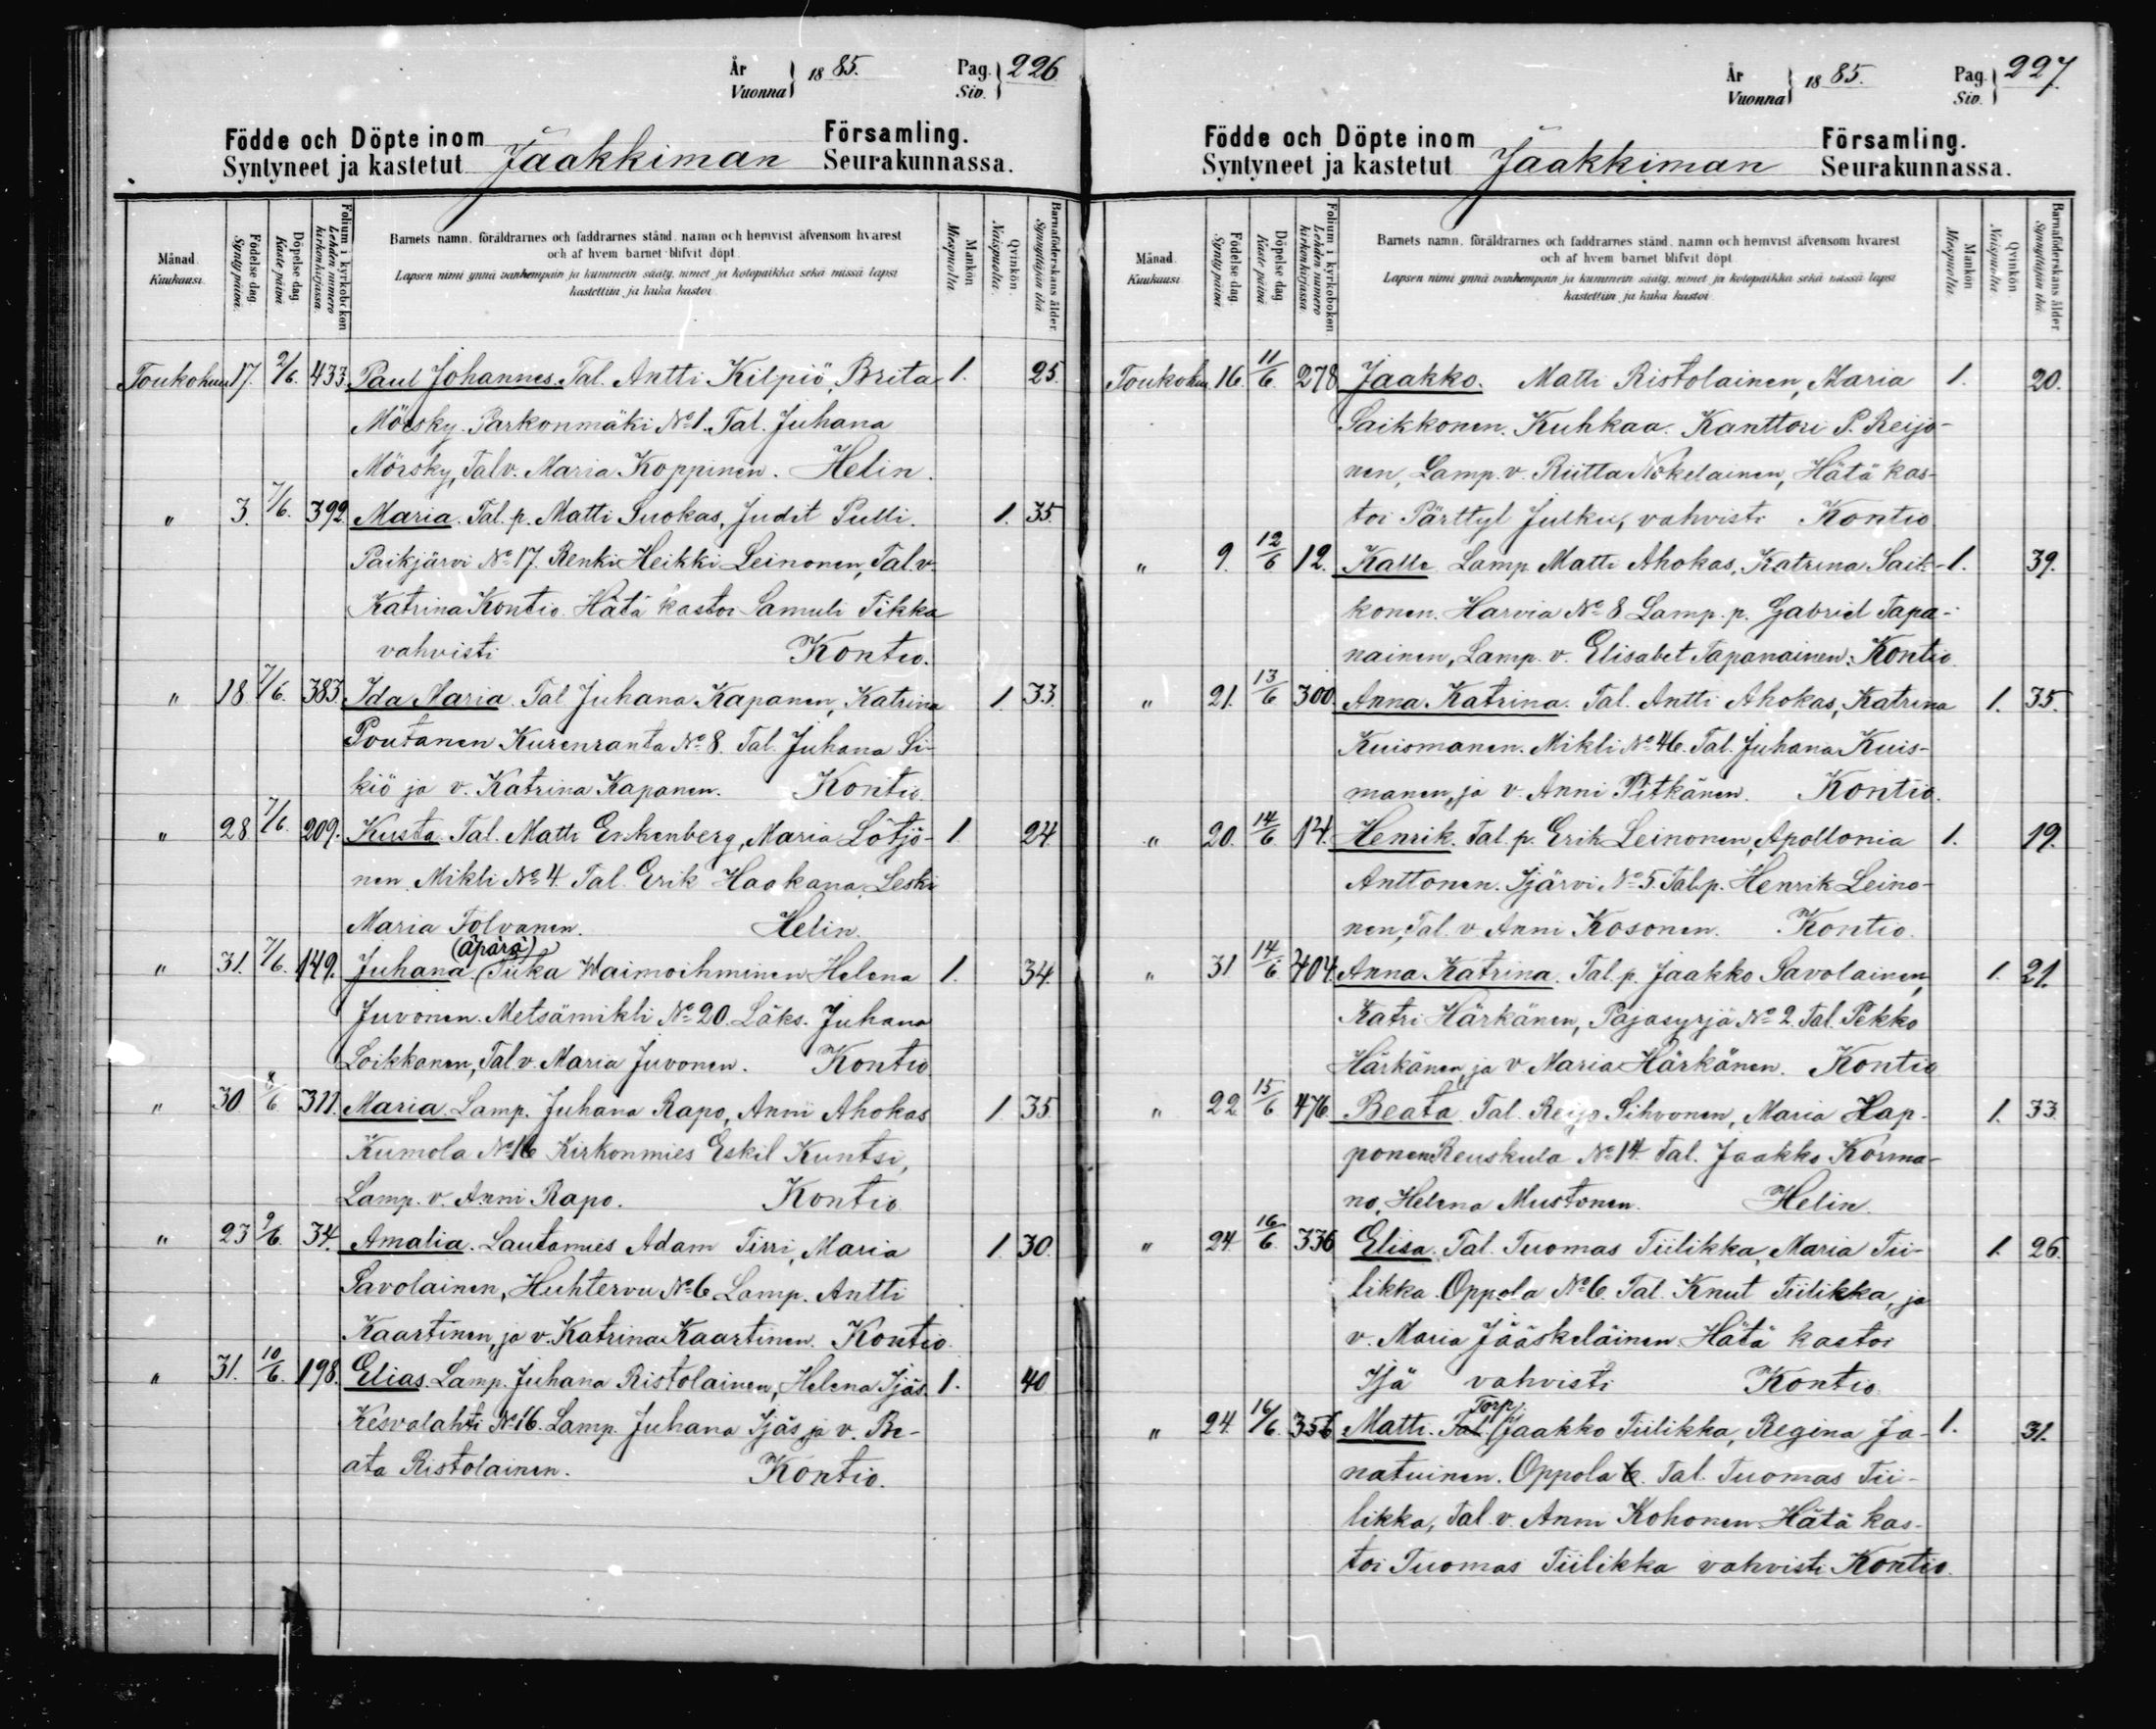 År Vuonna 1885. Pag. Siv. 226
Födde och Döpte inom Församling.
Syntyneet ja kastetut Jaakkiman Seurakunnassa.
Månad Kuukausi.
Födelse dag Synty päivä.
Döpelse dag Kaste päivä.
Folium i kyrkoboken Lehden numero kirkonkirjassa.
Barnets namn, föräldrarnes och faddrarnes stånd, namn och hemvist äfvensom hvarest
och af hvem barnet blifvit döpt.
Lapsen nimi ynnä vanhempain ja kummein sääty, nimet ja kotopaikka sekä missä lapsi
kastettiin ja kuka kastoi.
Mankön Miespuolia.
Qvinkön Naispuolia.
Barnaföderskans ålder Synnyttäjän ikä.
Toukokuu 17. 2/6. 433. Paul Johannes. Tal. Antti Kilpiö, Brita 1. 25.
Mörsky. Parkonmäki No 1. Tal. Juhana
Mörsky, Talv. Maria Koppinen. Helin.
" 3. 7/6. 392. Maria. Tal. p. Matti Suokas, Judit Pulli. 1. 35.
Paikjärvi No 17. Renki Heikki Leinonen, Tal. v.
Katrina Kontio. Hätä kastoi Samuli Tikka
vahvisti Kontio.
" 18 7/6. 383. Ida Maria. Tal Juhana Kapanen, Katrina 1. 33.
Poutanen Kurenranta No 8. Tal. Juhana Si-
kiö ja v. Katrina Kapanen. Kontio.
" 28. 7/6. 209. Kusta. Tal. Matti Enkenberg, Maria Lötjö- 1. 24.
nen. Mikli No 4. Tal. Erik Haakana, Leski
Maria Tolvanen. Helin.
(äpärä)
" 31. 7/6. 149. Juhana. Tuka Waimoihminen Helena 1. 34.
Juvonen. Metsämikli No 20. Läks. Juhana
Loikkanen, Tal. v. Maria Juvonen. Kontio
" 30 8/6 311. Maria. Lamp. Juhana Rapo, Anni Ahokas 1 35
Kumola No 16 Kirkonmies Eskil Kuntsi,
Lamp. v. Anni Rapo. Kontio.
" 23 9/6. 34. Amalia. Lautamies Adam Tirri, Maria 1. 30.
Savolainen, Huhtervu No 6 Lamp. Antti
Kaartinen, ja v. Katrina Kaartinen. Kontio.
" 31. 10/6. 198. Elias. Lamp. Juhana Ristolainen, Helena Ijäs. 1. 40
Kesvalahti No 16. Lamp. Juhana Ijäs ja v. Be-
ata Ristolainen. Kontio.
År Vuonna 1885. Pag. Siv. 227.
Födde och Döpte inom Församling.
Syntyneet ja kastetut Jaakkiman Seurakunnassa.
Månad Kuukausi.
Födelse dag Synty päivä.
Döpelse dag Kast-päivä.
Folium i kyrkoboken Lehden numero kirkonkirjassa.
Barnets namn, föräldrarnes och faddrarnes stånd, namn och hemvist äfvensom hvarest
och af hvem barnet blifvit döpt.
Lapsen nimi ynnä vanhempain ja kummein sääty, nimet ja kotopaikka sekä missä lapsi
kastettiin ja kuka kastoi.
Mankön Miespuolia.
Qvinkön Naispuolia.
Barnaföderskans ålder Synnyttäjän ikä.
Toukokuu. 16. 11/6. 278 Jaakko. Matti Ristolainen, Maria 1. 20.
Saikkonen. Kuhkaa. Kanttori P. Reijo-
nen, Lamp. v. Riitta Nokelainen, Hätä kas-
toi Pärttyl Julku, vahvisti Kontio
" 9. 12/6 12. Kalle. Lamp. Matti Ahokas, Katrina Saik- 1. 39.
konen. Harvia No 8 Lamp. p. Gabriel Tapa-
nainen, Lamp. v. Elisabet Tapanainen. Kontio
" 21. 13/6 300. Anna Katrina. Tal. Antti Ahokas, Katrina 1. 35.
Kuismanen. Mikli No 46. Tal. Juhana Kuis-
manen, ja v. Anni Pitkänen. Kontio.
" 20. 14/6. 14. Henrik. Tal. p. Erik Leinonen, Apollonia 1. 19.
Anttonen. Ijärvi No 5. Tal. p. Henrik Leino-
nen, Tal. v. Anni Kosonen. Kontio.
" 31 14/6. 404. Anna Katrina. Tal. p. Jaakko Savolainen, 1. 21.
Katri Härkänen, Pajasyrjä No 2. Tal. Pekko
Härkänen, ja v Maria Härkänen. Kontio
" 22 15/6 476. Beata. Tal. Reijo Sihvonen, Maria Hap- 1. 33.
ponen Reuskula No 14. Tal. Jaakko Korma-
no, Helena Mustonen. Helin.
" 24. 16/6. 336 Elisa. Tal. Tuomas Tiilikka, Maria Tii- 1. 26.
likka. Oppola No 6. Tal. Knut Tiilikka, ja
v. Maria Jääskeläinen. Hätä kastoi
Isä vahvisti Kontio.
Torp.
" 24. 16/6. 356 Matti. Tal. Jaakko Tiilikka, Regina Ja- 1. 31.
natuinen. Oppola 6. Tal. Tuomas Tii-
likka, Tal. v. Anni Kohonen. Hätä kas-
toi Tuomas Tiilikka vahvisti Kontio.